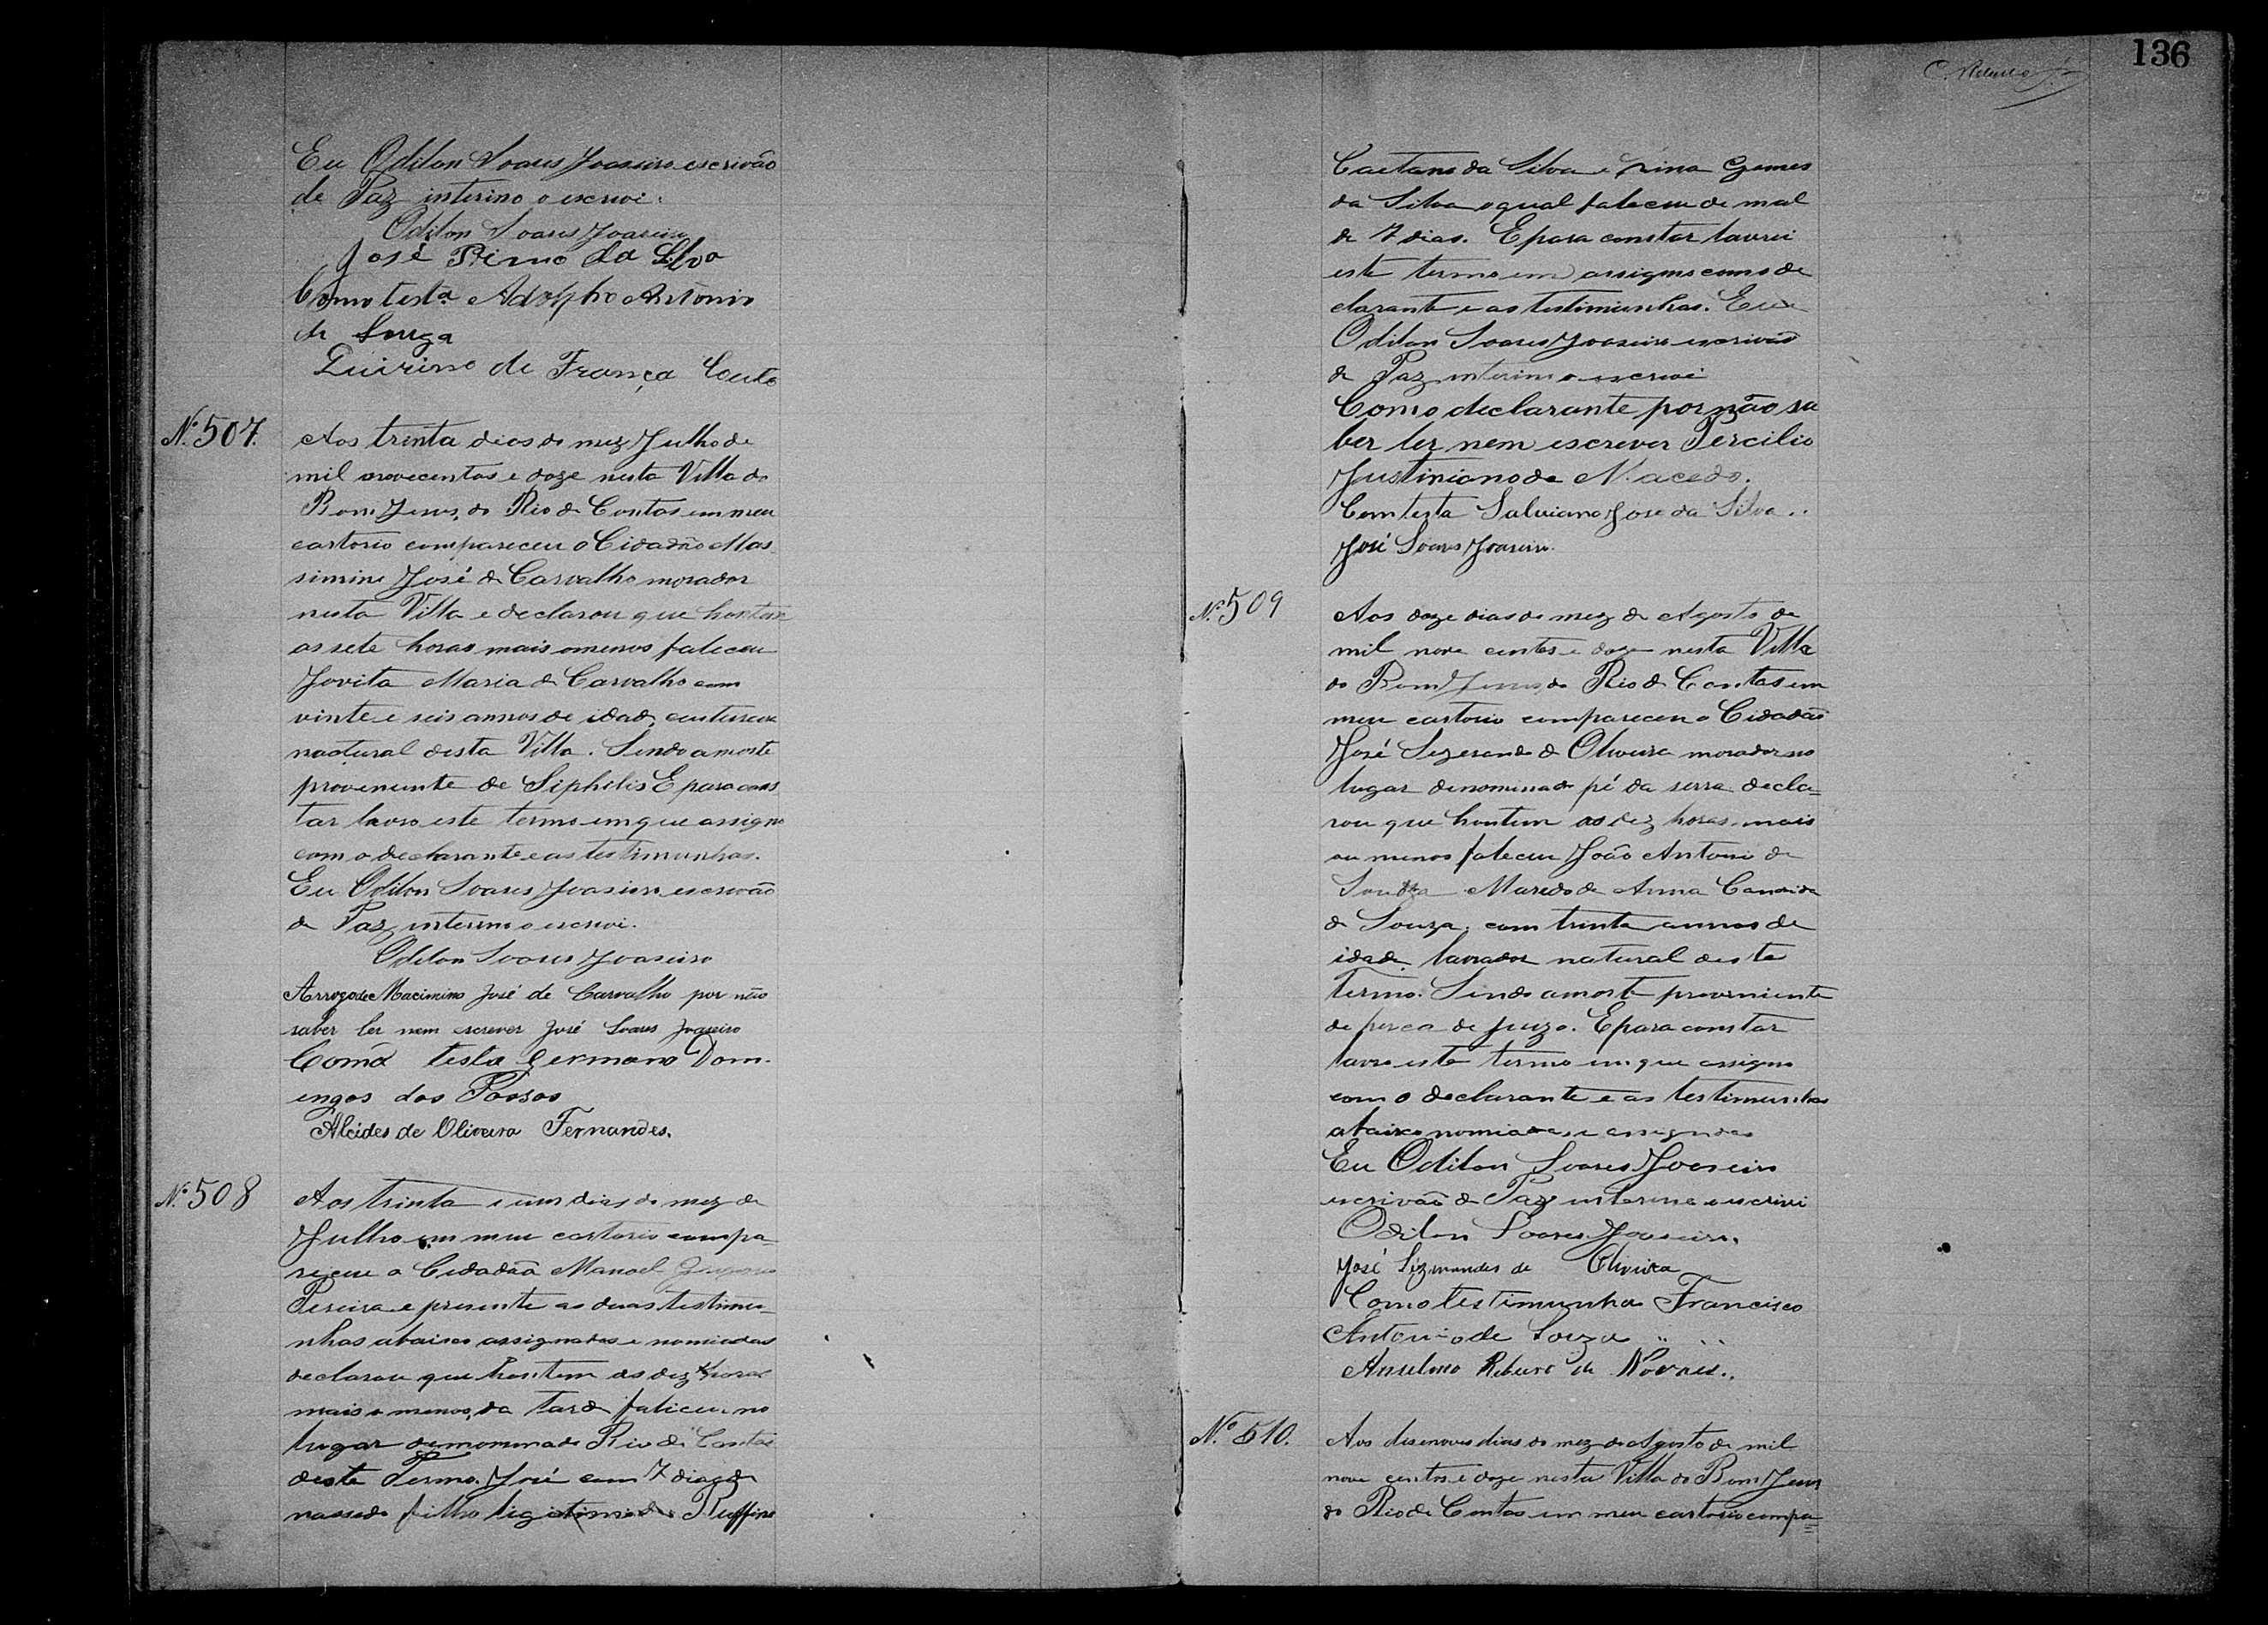 Eu Odilon Soares Joaseiro escrivão
de Paz interino o escrevi.
Odilon Soares Joaseiro
José Primo da Silva
Como testa Adolpho Antonio
de Souza
Quirino de França Couto
Nº 507.
Aos trinta dias do mez Julho de
mil novecentos e doze nesta Villa do
Bom Jesus do Rio de Contas em meu
cartorio compareceu o Cidadão Mas
simino José de Carvalho morador
nesta Villa e declarou que hontem
as sete horas mais o menos faleceu
Jovita Maria de Carvalho com
vinte e seis annos de idade, custureira
natural desta Villa. Sendo a morte
proveniente de Siphilis E para cons
tar lavro este termo em que assigno
com o declarante e as testimunhas.
Eu Odilon Soares Joaseiro escrivão
de Paz interino o escrevi.
Odilon Soares Joaseiro
Arrogo de Macimino José de Carvalho por não
saber ler nem escrever José Soares Joaseiro
Como testa Germano Dom-
ingos dos Passos
Alcides de Oliveira Fernandes.
Nº 508
Aos trinta e um dias do mez de
Julho em meu cartorio compa-
receu o Cidadão Manoel
Pereira e presente as duas testimu-
nhas abaixo assignados e nomiadas
declarou que hontem as dez horas
mais o menos, da tarde faliceu no
lugar denominado Rio de Contas
deste Termo. José com 7 dias de
nassido filho ligitimo de Ruffino
136
Caetano da Silva e Gomes
da Silva o qual faleceu de mal
de 7 dias. E para constar lavrei
este termo em assigno com o de
clarante e as testimunhas. Eu
Odilon Soares Joaseiro escrivão
de Paz interino o escrevi
Como declarante por não sa
ber ler nem escrever Percilio
Justiniano de Macedo.
Com testa Salviano José da Silva..
José Soares Joaseiro.
Nº 509
Aos doze dias do mez de Agosto de
mil nove centos e doze nesta Villa
do Bom Jesus do Rio de Contas em
meu cartorio compareceu o Cidadão
José Sezenando de Oliveira morador no
lugar denominado pé da serra decla-
rou que hontem as dez horas mais
ou menos faleceu João Antonio de
Souza Maredo de Anna Candida
de Souza, com trinta annos de
idade, lavrador natural deste
termo. Sendo a morte proveniente
de de juizo. E para constar
lavro este termo em que assigno
com o declarante e as testimunhas
abaixo nomiadas e assignadas
Eu Odilon Soares Joaseiro
escrivão de Paz interino o escrivi
Odilon Soares Joaseiro.
José de Oliveira
Como testimunha Francisco
Antonio de Souza
Anselmo Ribeiro de Novaes..
Nº 510.
Aos disenove dias do mez de Agosto de mil
nove centos e doze nesta Villa do Bom Jesus
do Rio de Contas em meu cartorio compa=